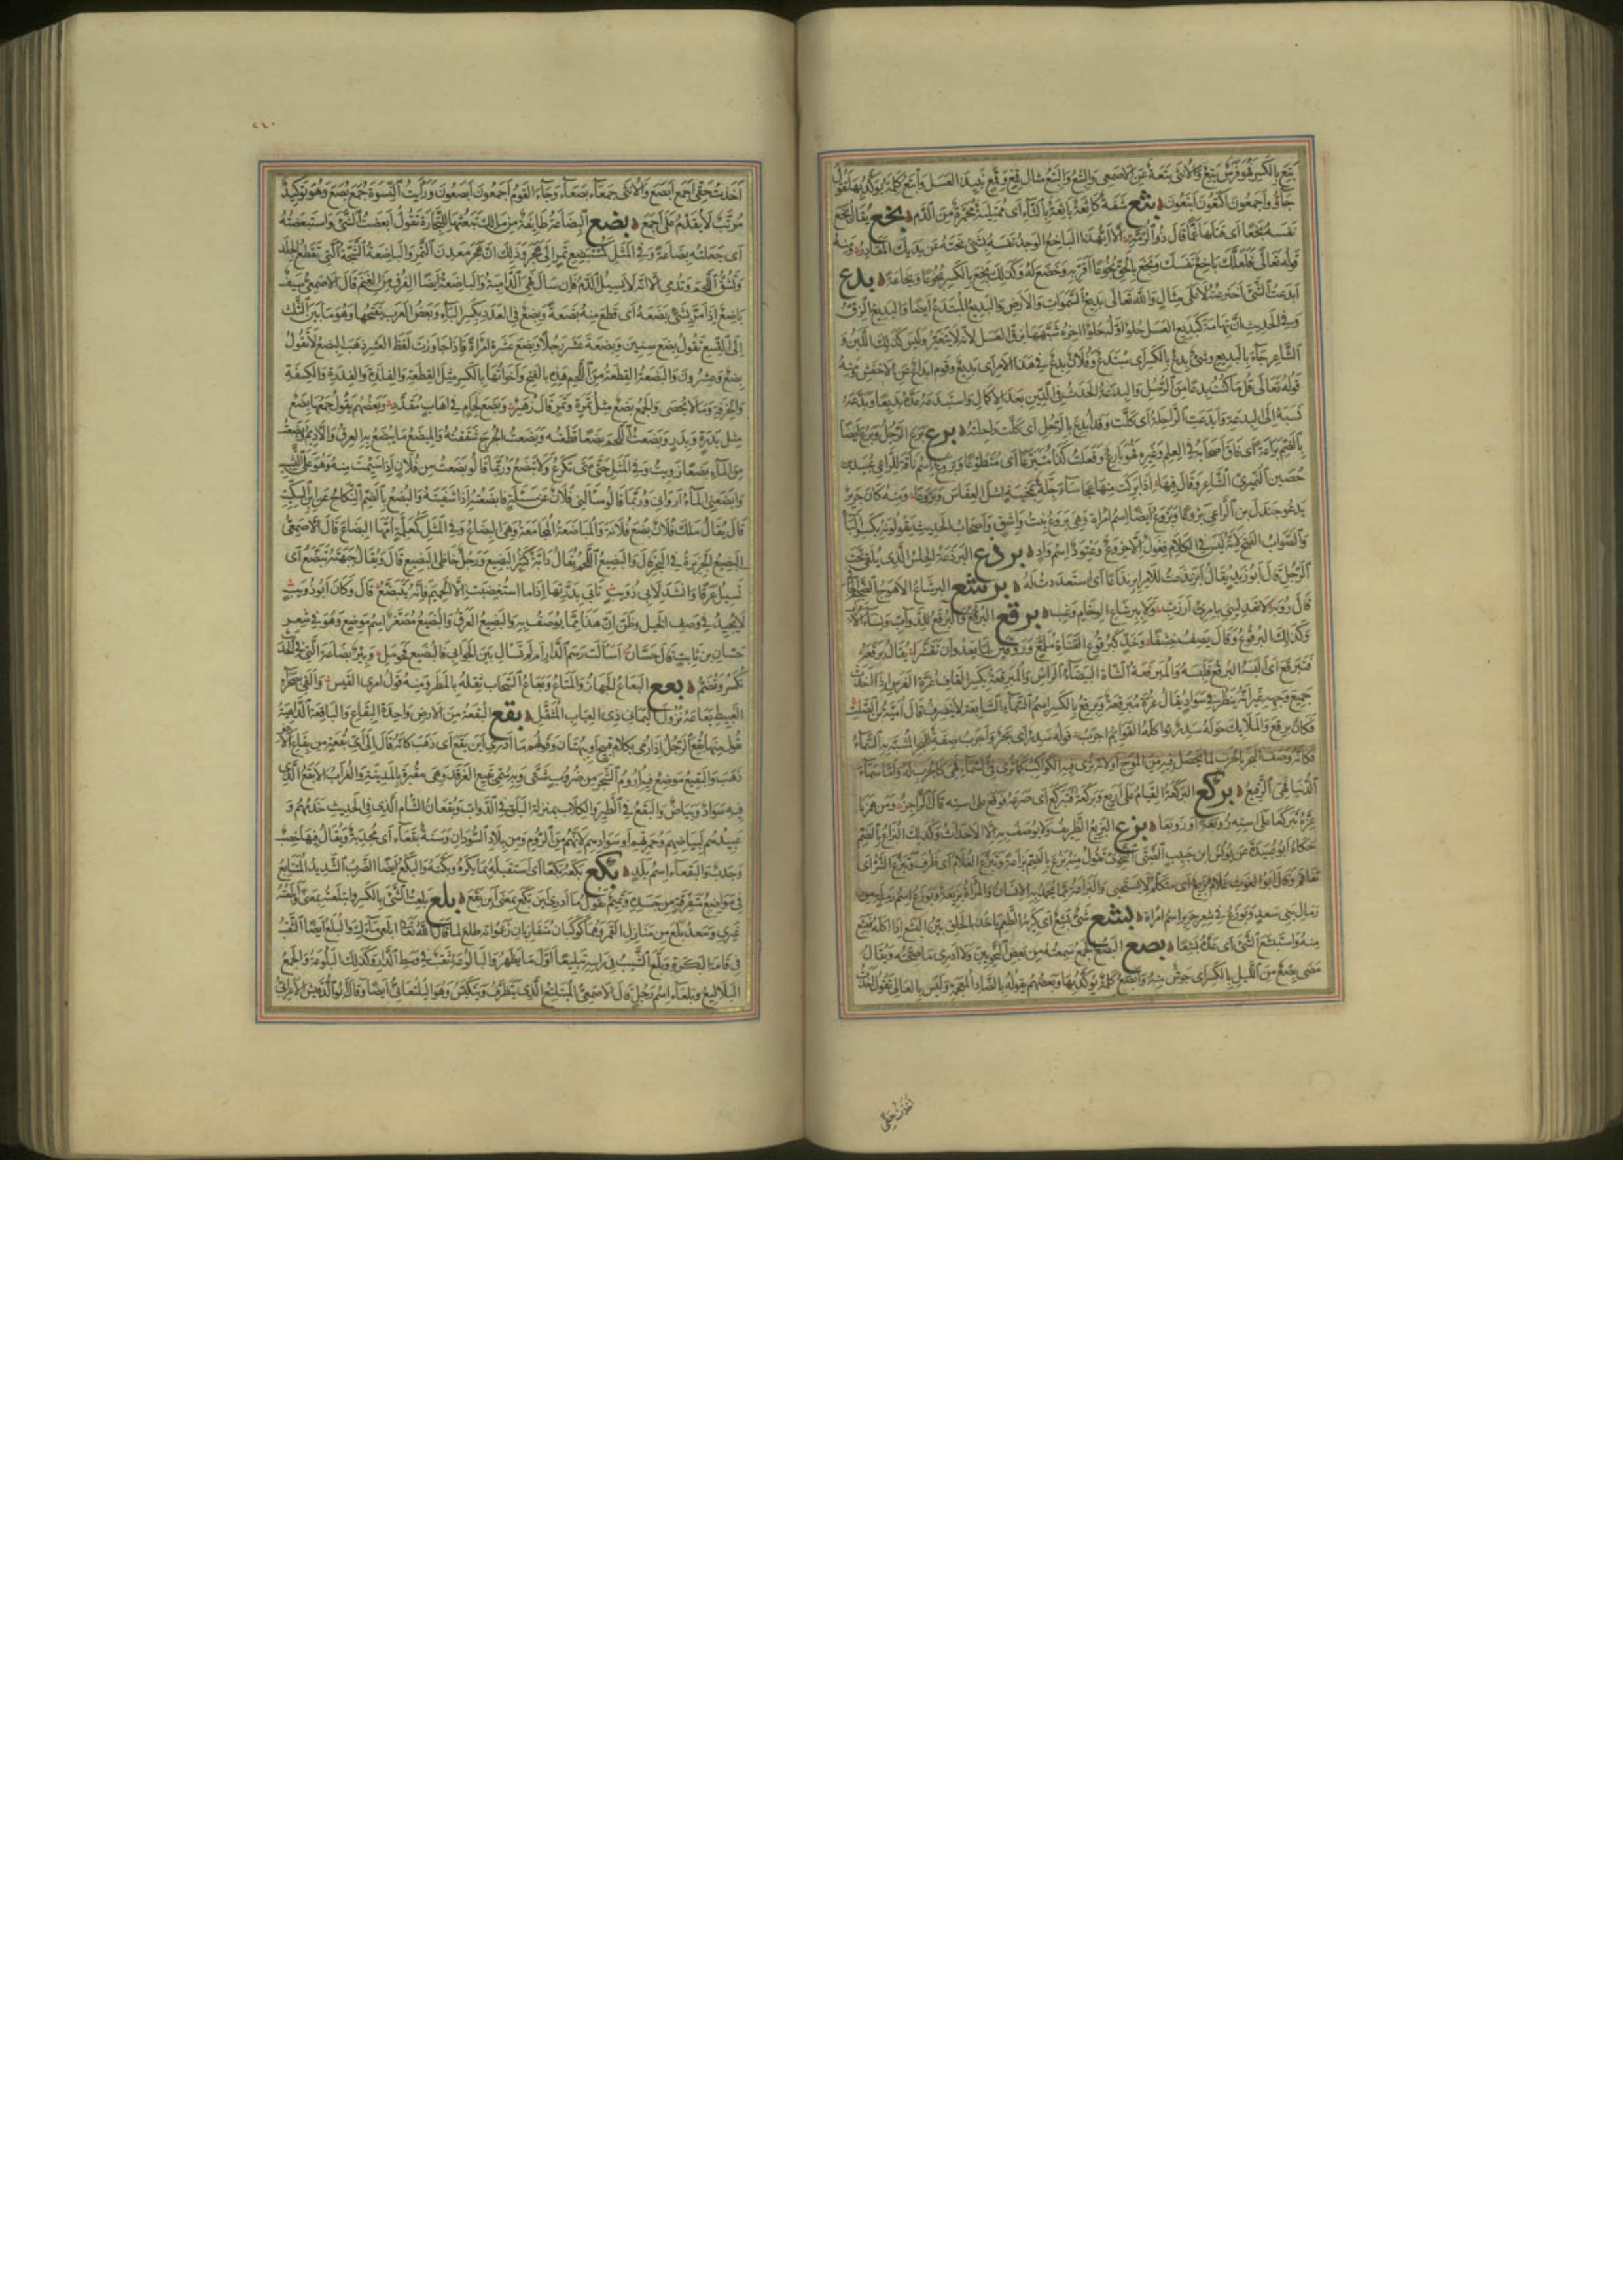 بَتِعَ بالكسر فهو فرس بَتِعٌ والأنثى بَتِعَة عن الاصمعى والبِتْعُ والبِتَعُ مثال قِمْعٍ وقِمَعٍ نبيذ العسل وأبتع كلمة يؤكد بها تقول
جاؤا اجمعون اكتعون ابتعون بثع شفة كاثعة باثعة بالثاء اى ممتلئة محمرة من الدم بخع يقال بخع
نفسه بخعا اى قتلها غما قال ذو الرمة ألا ايهذا الباخع الوجد نفسه لشئ نحته عن يديك المقادر ومنه
قوله تعالى فلعلك باخع نفسك وبخع بالحق بخوعا اقر به وخضع له وكذلك بخع بالكسر بخوعا وبخاعة بدع
ابدعت الشئ اخترعته لا على مثال والله تعالى بديع السموات والارض والبديع المبتدع ايضا والبديع الزق
وفى الحديث ان تهامة كبديع العسل حلو اوله حلو اخره شبهها بزق العسل لانه لا يتغير وليس كذلك اللبن و
الشاعر جاء بالبديع وشئ بدع بالكسر اى مبتدع وفلان بدع فى هذا الامر اى بديع وقوم ابداع عن الاخفش ومنه
قوله تعالى قل ما كنت بدعا من الرسل والبدعة الحدث فى الدين بعد الاكمال واستبدعه عده بديعا وبدعه
نسبه الى البدعة وابدعت الراحلة اى كلت وقد ابدع بالرجل اى كلت راحلته برع برع الرجل وبرع ايضا
بالضم براعة اى فاق اصحابه فى العلم وغيره فهو بارع وفعلت كذا متبرعا اى متطوعا وبروع اسم ناقة للراعى عبيد بن
حصين النميرى الشاعر وقال فيها اذا بركت منها عجاساء جلة بمحنية اشلى العفاس وبروعا ومنه كان جرير
يدعو جندل بن الراعى بروعا وبروع ايضا اسم امراة وهى بروع بنت واشق واصحاب الحديث يقولونه بكسر الباء
والصواب الفتح لانه ليس فى الكلام فعول الا خروع وعتود اسم واد برذع البرذعة الحلس الذى يلقى تحت
الرحل قال ابو زيد يقال ابرنذعت للامر ابرنذاعا اى استعددت له برشع البرشاع الاهوج الضخم
قال رؤبة لا تعدلينى بامرئ ارزب ولا ببرشاع الوخام وغب برقع البرقع والبرقع للدواب ونساء
وكذلك البرقوع وقال يصف خشفا وخد كبرقوع الفتاة ملمع وروقين لما يعدوا ان تقشرا يقال برقعه
فتبرقع اى البسه البرقع فلبسه والمبرقعة الشاة البيضاء الراس والمبرقعة بكسر القاف غرة الفرس اذا اخذت
جميع وجهه غير انه ينظر فى سواد يقال غرة مبرقعة وبرقع بالكسر اسم السماء السابعة لا ينصرف قال امية بن ابى الصلت
فكان برقع والملائك حوله سدر تواكله القوائم اجرب قوله سدر اى بحر واجرب صفة البحر المشبه به السماء
فكانه وصف البحر بالجرب لما يحصل فيه من الموج او لانه ترى فيه الكواكب كما ترى فى السماء فهى كالجرب له واما سماء
الدنيا فهى الرقيع بركع البركعة القيام على اربع وبركعه فتبركع اى صرعه فوقع على استه قال الراجز ومن همزنا
عزه تبركعا على استه زوبعة او زوبعا بزع البزيع الظريف ولا يوصف به الا الاحداث وكذلك البزاع بالضم
حكاه ابو عبيدة عن يونس بن حبيب الضبى النحوى تقول منه بزع بالضم بزاعة وتبزع الغلام اى ظرف وتبزع الشر اى
تفاقم وقال ابو الغوث غلام بزيع اى متكلم لا يستحيى والبزاعة مما يحمد به الانسان والمراة بزيعة وبوزع اسم رملة من
رمال بنى سعد وبوزع فى شعر جرير اسم امراة بشع شئ بشع اى كريه الطعم ياخذ بالحلق بين البشاعة
منه واستبشع الشئ اى عده بشعا بصع البصع الجمع سمعته من بعض النحويين ولا ادرى ما صحته ويقال
مضى بصع من الليل بالكسر اى جوش منه وابصع كلمة يؤكد بها وبعضهم يقوله بالضاد المعجمة وليس بالعالى تقول اخذت
اخذت حقى
٢١٠
اخذت حقى اجمع ابصع والانثى جمعاء بصعاء وجاء القوم اجمعون ابصعون ورايت النسوة جمع بصع وهو توكيد
مرتب لا يقدم على اجمع بضع البضاعة طائفة من مالك تبعثها للتجارة تقول ابضعت الشئ واستبضعته
اى جعلته بضاعة وفى المثل كمستبضع تمر الى هجر وذلك ان هجر معدن التمر والباضعة الشجة التى تقطع الجلد
وتشق اللحم وتدمى الا انه لا تسيل الدم فان سال فهى الدامية والباضعة ايضا الفرق من الغنم قال الاصمعى سيف
باضع اذا مر بشئ بضعه اى قطع منه بضعة وبضع فى العدد بكسر الباء وبعض العرب يفتحها وهو ما بين الثلث
الى التسع تقول بضع سنين وبضعة عشر رجلا وبضع عشرة امراة فاذا جاوزت لفظ العشر ذهب البضع لا تقول
بضع وعشرون والبضعة القطعة من اللحم هذه بالفتح واخواتها بالكسر مثل القطعة والفلذة والفدرة والكسفة
والخرقة وما لا يحصى والجمع بضع مثل تمرة وتمر قال زهير وبضع لحام فى اهاب مقدد وبعضهم يقول جمعها بضع
مثل بدرة وبدر وبضعت اللحم بضعا قطعته وبضعت الجرح شققته والمبضع ما يبضع به العرق والاديم وبضعت
من الماء بضعا رويت وفى المثل حتى متى تكرع ولا تبضع وربما قالوا بضعت من فلان اذا سئمت منه وهو على التشبيه
وابضعنى الماء اروانى وربما قالوا سالنى فلان عن مسئلة فابضعته اذا شفيته والبضع بالضم النكاح عن ابن السكيت
قال يقال ملك فلان بضع فلانة والمباضعة المجامعة وهى البضاع وفى المثل كمعلمة امها البضاع قال الاصمعى
البضيع الجزيرة فى البحر قال والبضيع اللحم يقال دابة كثير البضيع ورجل خاظى البضيع قال ويقال جبهته تبضع اى
تسيل عرقا وانشد لابى ذؤيب تابى بدرتها اذا ما استغضبت الا الحميم فانه يتبضع قال وكان ابو ذؤيب
لا يجيد فى وصف الخيل وظن ان هذا مما يوصف به والبضيع العرق والبضيع مصغر اسم موضع وهو فى شعر
حسان بن ثابت قال حسان اسالت رسم الدار ام لم تسال بين الجوابى فالبضيع فحومل وبئر بضاعة التى فى الحديث
تكسر وتضم بعع البعاع الجهاز والمتاع وبعاع السحاب ثقله بالمطر ومنه قول امرئ القيس والقى بصحراء
الغبيط بعاعه نزول اليمانى ذى العياب المثقل بقع البقعة من الارض واحدة البقاع والباقعة الداهية
تقول منها بقع الرجل اذا رمى بكلام قبيح او بهتان وقولهم ما ادرى اين بقع اى ذهب كانه قال الى اى بقعة من بقاع الارض
ذهب والبقيع موضع فيه اروم الشجر من ضروب شتى وبه سمى بقيع الغرقد وهى مقبرة بالمدينة والغراب الابقع الذى
فيه سواد وبياض والبقع فى الطير والكلاب بمنزلة البلق فى الدواب وبقعان الشام الذى فى الحديث خدمهم و
عبيدهم لبياضهم وحمرتهم او سوادهم لانهم من الروم ومن بلاد السودان وسنة بقعاء اى مجدبة ويقال فيها خصب
وجدب والبقعاء اسم بلد بكع بكعه بكعا اى استقبله بما يكره وبكته والبكع ايضا الضرب الشديد المتتابع
فى مواضع متفرقة من جسده وتميم تقول ما ادرى اين بكع بمعنى اين بقع بلع بلعت الشئ بالكسر وابتلعته بمعنى وابلعته
غيرى وسعد بلع من منازل القمر وهما كوكبان متقاربان زعموا انه طلع لما قال الله تعالى يا ارض ابلعى ماءك والبلع ايضا الثقب
فى قامة البكرة وبلع الشيب فى راسه تبليعا اول ما يظهر والبالوعة ثقب فى وسط الدار وكذلك البلوعة والجمع
البلاليع وبلعاء اسم رجل قال الاصمعى المتبلتع الذى يتظرف ويتكيس وهو البلتعانى ايضا وقال ابو الدقيش الاعرابى